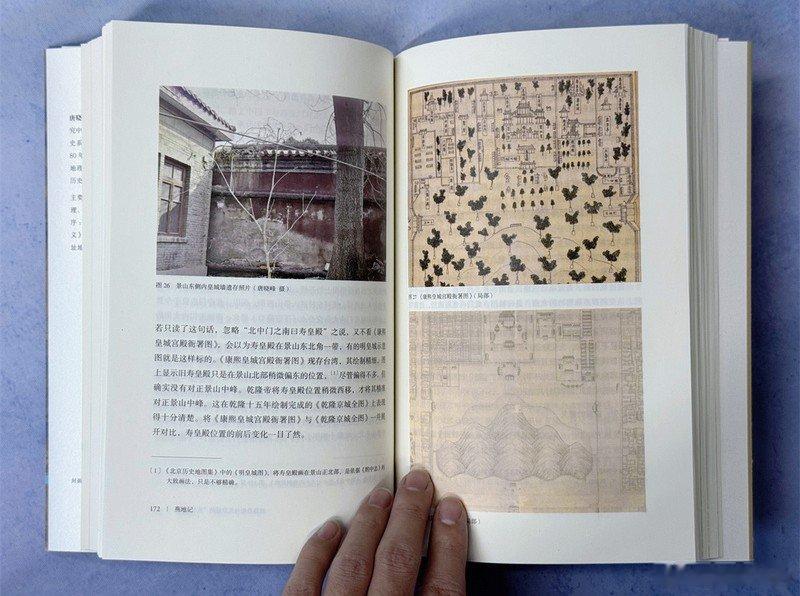 唐晓
究中
史系
80年
地理
历史
主要
理、
序：
义》
址地
封面
图26 景山东侧内皇城墙遗存照片（唐晓峰 摄）
若只读了这句话，忽略“北中门之南曰寿皇殿”之说，又不看《康熙
皇城宫殿衙署图》，会以为寿皇殿在景山东北角一带，有的明皇城示意
图就是这样标的。《康熙皇城宫殿衙署图》现存台湾，其绘制精细。图
上显示旧寿皇殿只是在景山北部稍微偏东的位置，[1]尽管偏得不多，但
确实没有对正景山中峰。乾隆帝将寿皇殿位置稍微西移，才将其
对正景山中峰。这在乾隆十五年绘制完成的《乾隆京城全图》上表现
得十分清楚。将《康熙皇城宫殿衙署图》与《乾隆京城全图》一并展
开对比，寿皇殿位置的前后变化一目了然。
[1] 《北京历史地图集》中的《明皇城图》，将寿皇殿画在景山正北部，是依据《酌中志》的
大致画法，只是不够精确。
172 | 燕地记
图27 《康熙皇城宫殿衙署图》（局部）
局部）